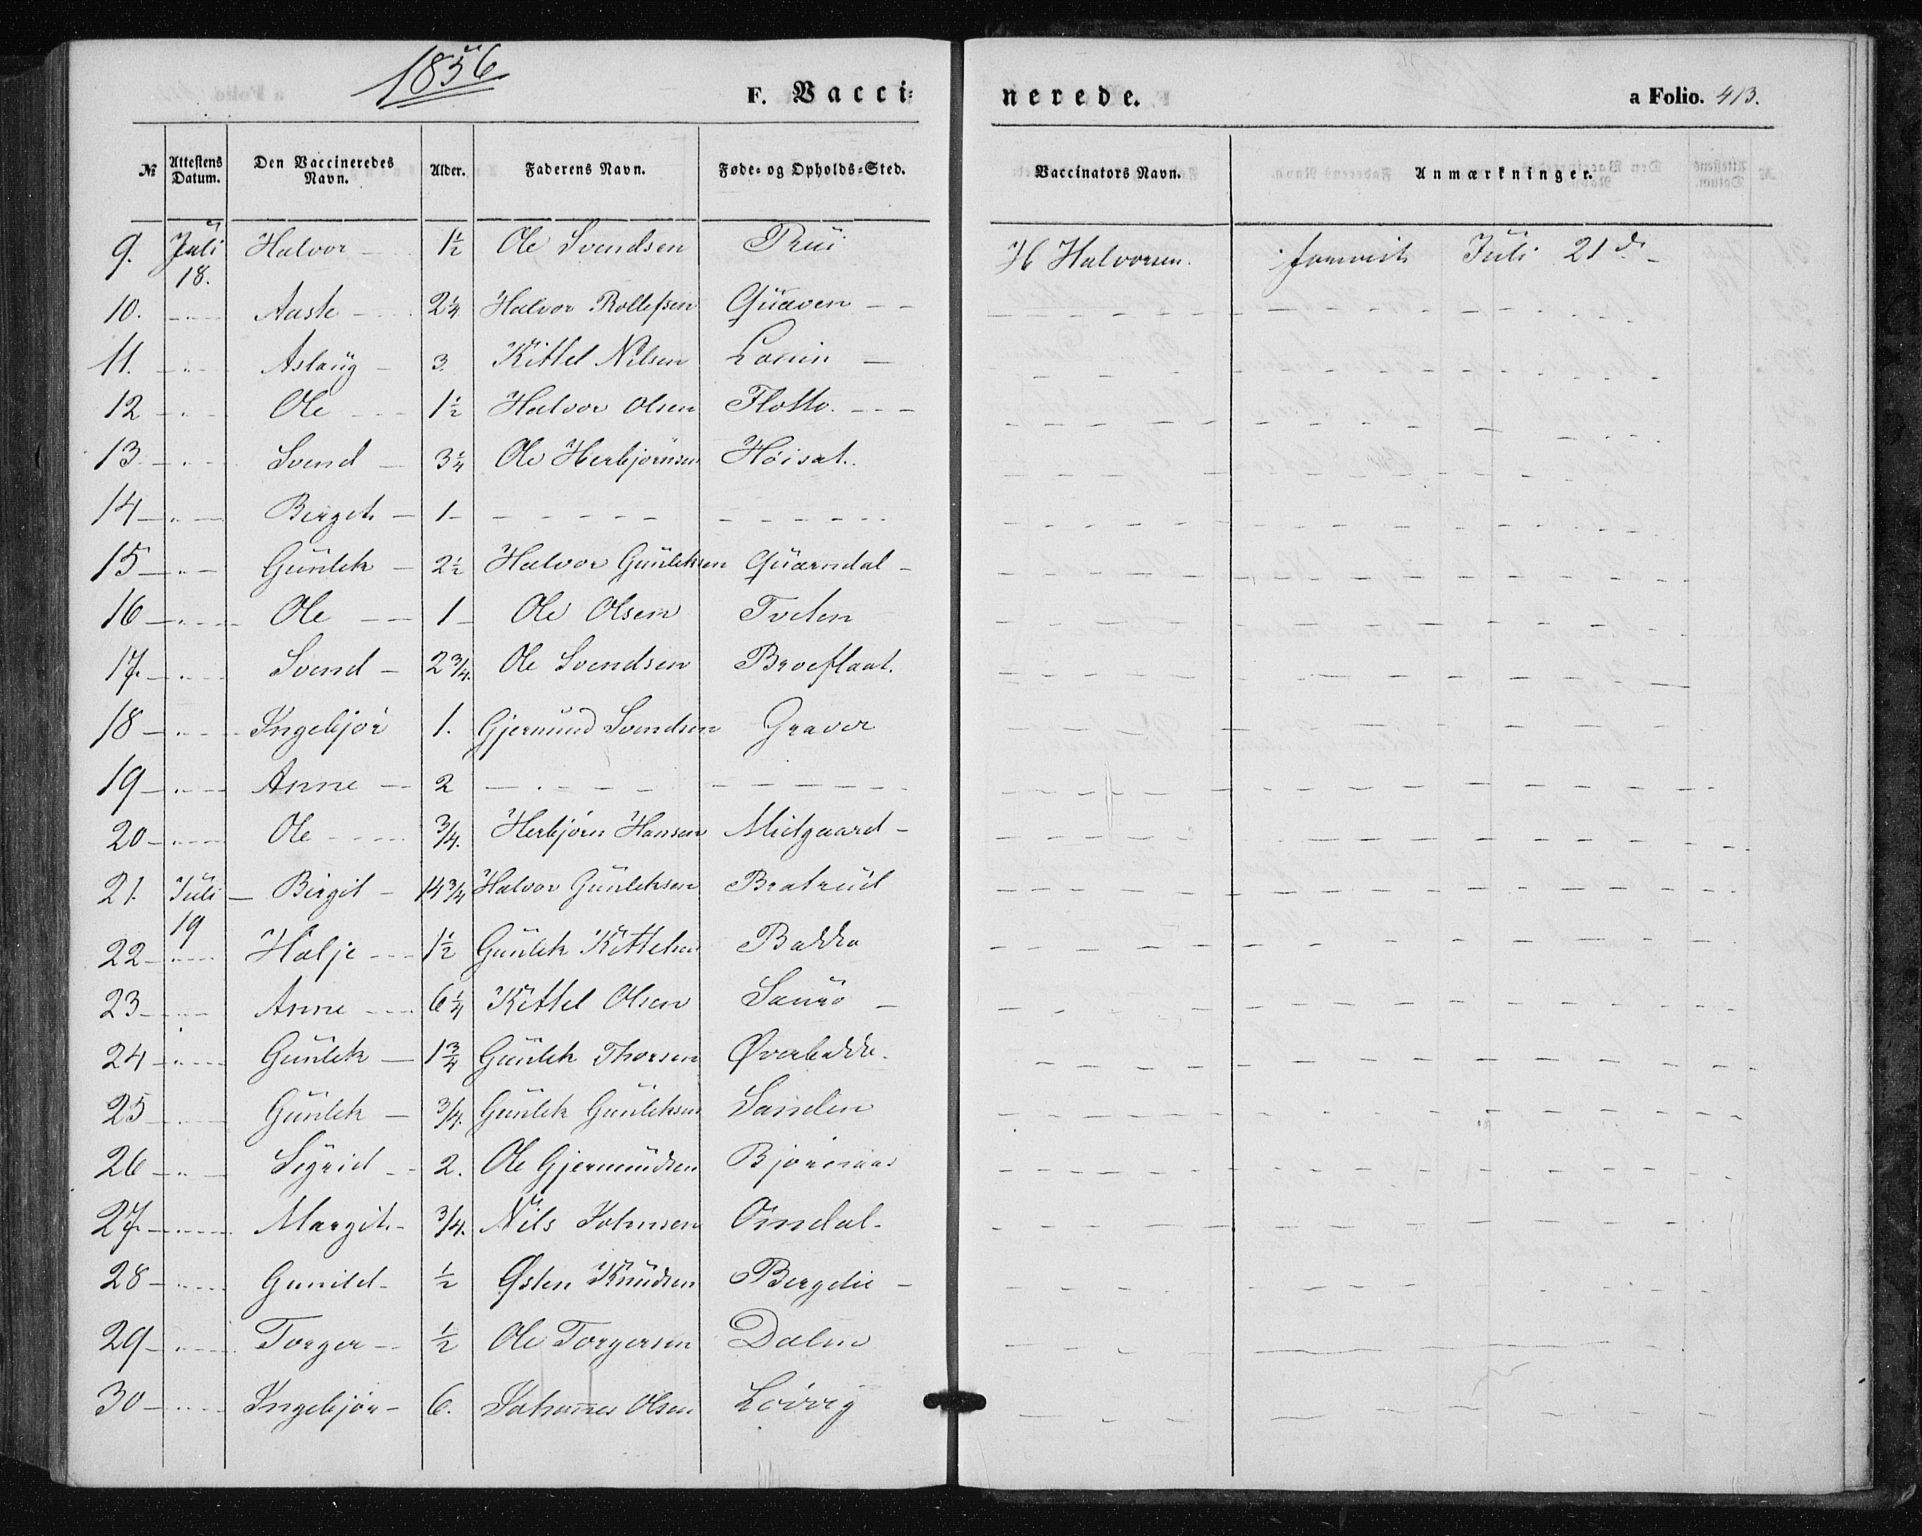 1856
F. Vacci=
nerede.
a Folio. 413.
№ Attestens Datum. Den Vaccineredes Navn. Alder. Faderens Navn. Føde= og Opholds=Sted. Vaccinators Navn. Anmærkninger.
9. Juli 18. Halvor 1½ Ole Svendsen H Halvorsen. Juli 21d.
10. Aaste 2¼ Halvor Rollefsen Qvaven
11. Aslaug 3. Kittel Nilsen
12 Ole 1½ Halvor Olsen Flotto.
13 Svend 3¼ Ole Herbjørnsen Höisæt.
14 Berget 1 - - - - - - - - - -
15 Gunlek 2½ Halvor Gunleksen Qværndal
16 Ole 1 Ole Olsen Tveten
17. Svend 2¾. Ole Svendsen Broeflaat.
18 Ingebjør 1. Gjermund Svendsen Graver
19 Anne 2 - - - - - - - - - -
20 Ole ¾. Herbjörn Hansen Midgaard
21. Juli 19 Birgit 14¾ Halvor Gunleksen Bratrud
22 Hælje 1½ Gunlek Kittelsen Bakka
23 Anne 6¼ Kittel Olsen Saure
24 Gunlek 1¾ Gunlek Thorsen Øverbakke.
25 Gunlek ¾. Gunlek Gunleksen Sanden
26 Sigrid 2. Ole Gjermundsen Bjørnaas
27. Margit ¾. Nils Johnsen Omdal
28 Gunild ½ Østen Knudsen Bergelie
29 Torger ½ Ole Torgersen Dalen
30 Ingebjør 6. Johannes Olsen Lövvig